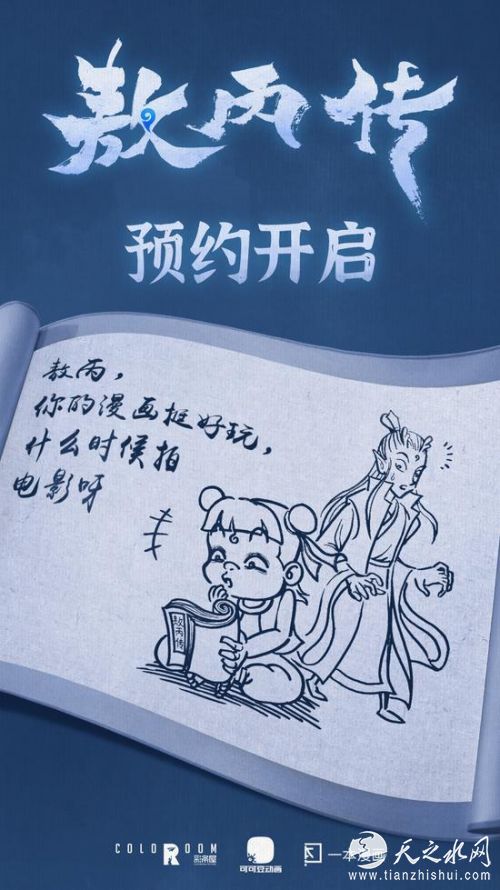 敖丙传
预约开启
敖丙，
你的漫画挺好玩，
什么时候拍
电影呀
敖丙传
COLOROOM
彩条屋
可可豆动画
一本漫画
天之水网
www.tianzhishui.com